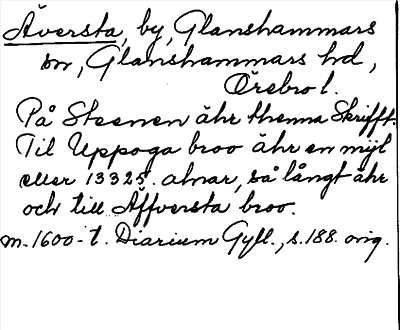 Äversta, by, Glanshammars
sn, Glanshammars hd,
Örebro l.
På Steenen ähr thenna Skrifft.
Til Uppoga broo ähr en myl
eller 13325. alnar, så långt ähr
och till Äffversta broo.
m. 1600-t. Diarium Gyll., s. 188. orig.